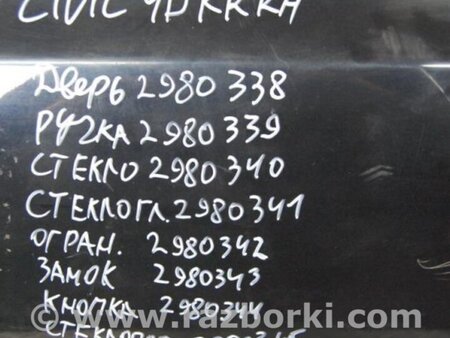 CIVIC 4D KRKA
Дверь 2980 338
РУЧКА 2980339
СТЕКЛО 2980340
СТЕКЛОГЛ. 2980341
ОГРАН. 2980342
ЗАМОК 2980343
КНОПКА 2980344
www.razborki.com